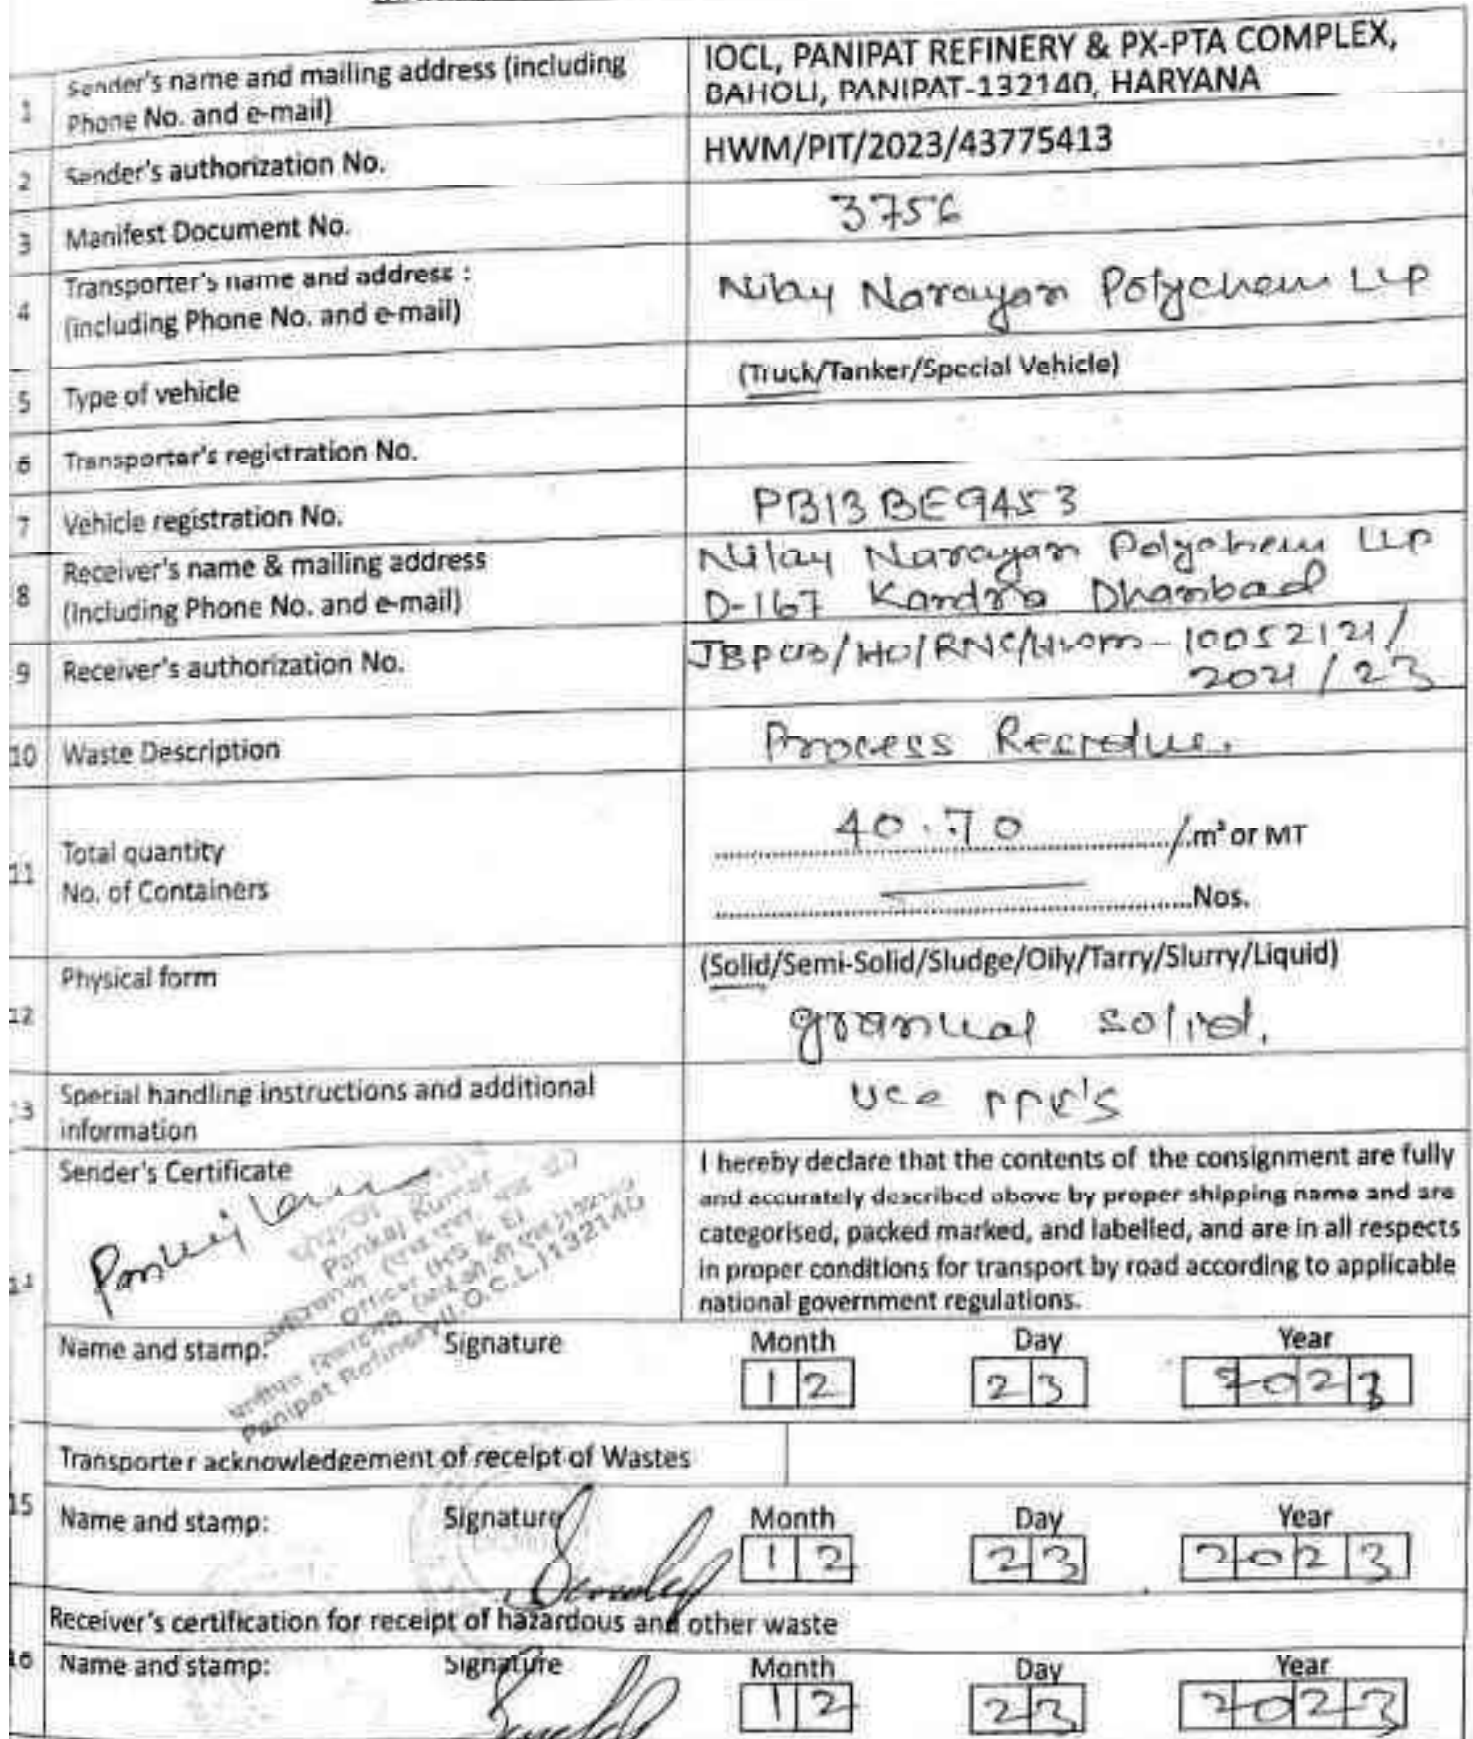 1 Sender's name and mailing address (including Phone No. and e-mail)
IOCL, PANIPAT REFINERY & PX-PTA COMPLEX,
BAHOLI, PANIPAT-132140, HARYANA
2 Sender's authorization No.
HWM/PIT/2023/43775413
3 Manifest Document No.
3756
4 Transporter's name and address :
(including Phone No. and e-mail)
Nilay Narayan Polychem LLP
5 Type of vehicle
(Truck/Tanker/Special Vehicle)
6 Transporter's registration No.
7 Vehicle registration No.
PB13BE9453
8 Receiver's name & mailing address
(Including Phone No. and e-mail)
Nilay Narayan Polychem LLP
D-167 Kandra Dhanbad
9 Receiver's authorization No.
JBPCB/HO/RNC/HWM-10052121/
2021/23
10 Waste Description
Process Residue.
11 Total quantity
40.70 /.m³ or MT
No. of Containers
Nos.
12 Physical form
(Solid/Semi-Solid/Sludge/Oily/Tarry/Slurry/Liquid)
granual solid.
13 Special handling instructions and additional
information
Use PPE's
Sender's Certificate
Pankaj Kumar
Officer (HS & E)
Panipat Refinery(I.O.C.L.)132140
I hereby declare that the contents of the consignment are fully
and accurately described above by proper shipping name and are
categorised, packed marked, and labelled, and are in all respects
in proper conditions for transport by road according to applicable
national government regulations.
Name and stamp: Signature Month Day Year
12 23 2023
Transporter acknowledgement of receipt of Wastes
15 Name and stamp: Signature Month Day Year
12 23 2023
Receiver's certification for receipt of hazardous and other waste
16 Name and stamp: Signature Month Day Year
12 23 2023